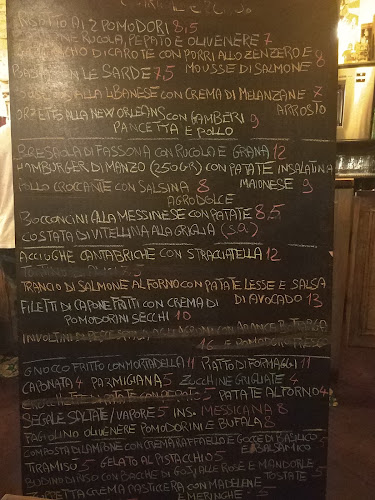 RISOTTO AI 2 POMODORI 8,5
RUCOLA, PEPATO E OLIVE NERE 7
DI CAROTE CON PORRI ALLO ZENZERO E 8
LE SARDE 7,5 MOUSSE DI SALMONE
ALLA LIBANESE CON CREMA DI MELANZANE 7
ALLA NEW ORLEANS CON GAMBERI ARROSTO
PANCETTA E POLLO 9
BRESAOLA DI FASSONA CON RUCOLA E GRANA 12
HAMBURGER DI MANZO (250 GR) CON PATATE INSALATINA
POLLO CROCCANTE CON SALSINA 8 MAIONESE 9
AGRODOLCE
BOCCONCINI ALLA MESSINESE CON PATATE 8,5
COSTATA DI VITELLINA ALLA GRIGLIA (S.Q.)
ACCIUGHE CANTABRICHE CON STRACCIATELLA 12
TRANCIO DI SALMONE AL FORNO CON PATATE LESSE E SALSA
FILETTI DI CAPONE FRITTI CON CREMA DI DI AVOCADO 13
POMODORINI SECCHI 10
INVOLTINI DI PESCE
16 E POMODORO FRESCO
GNOCCO FRITTO CON MORTADELLA 11 PIATTO DI FORMAGGI 11
CAPONATA 4 PARMIGIANA 5 ZUCCHINE GRIGLIATE 4
PATATE AL FORNO 4
SEGALE SALTATE/VAPORE 5 INS. MESSICANA 8
FAGIOLINO OLIVE NERE POMODORINI E BUFALA 8
COMPOSTA DI LAMPONE CON CREMA RAFFAELLO E GOCCE DI BASILICO
TIRAMISU 5 GELATO AL PISTACCHIO 5 E BALSAMICO
BUDINO DI RISO CON BACCHE DI GOJI ALLE ROSE E MANDORLE
CREMA PASTICCERA CON MADELEINE TOSTATE 5
E MERINGHE